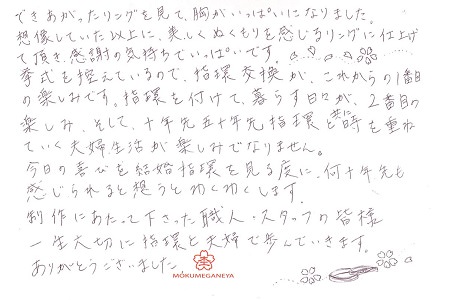 できあがったリングを見て、胸がいっぱいになりました。
想像していた以上に、美しくぬくもりを感じるリングに仕上げ
て頂き、感謝の気持ちでいっぱいです。
挙式を控えているので、指環交換が、これからの1番目
の楽しみです。指環を付けて、暮らす日々が、2番目の
楽しみ、そして、十年先五十年先指環と共に時を重ね
ていく夫婦生活が楽しみでなりません。
今日の喜びを結婚指環を見る度に、何十年先も
感じられると想うとわくわくします。
制作にあたって下さった職人・スタッフの皆様
一生大切に指環と夫婦で歩んでいきます。
ありがとうございました
MOKUMEGANEYA